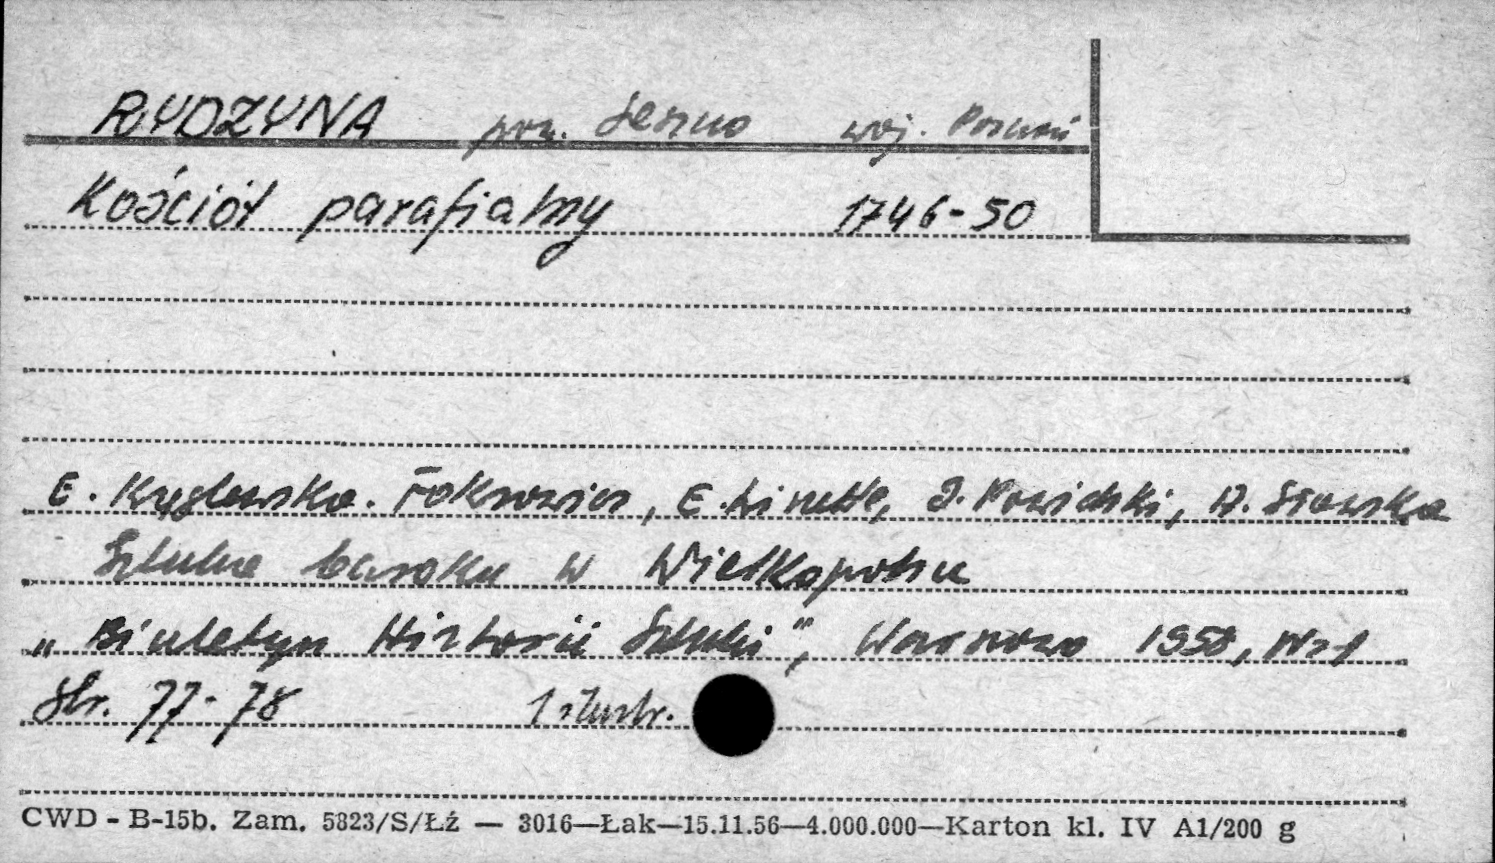 RYDZYNA pow. Leszno woj. Poznań
Kościół parafialny 1746-50
E. Kręglewska-Foksowicz, E. Linette, J. Powidzki, A. Sławska
Sztuka baroku w Wielkopolsce
„Biuletyn Historii Sztuki", Warszawa 1958, Nr 1
Str. 77-78 1 ilustr.
CWD - B-15b. Zam. 5823/S/Łź — 3016—Łak—15.11.56—4.000.000—Karton kl. IV A1/200 g